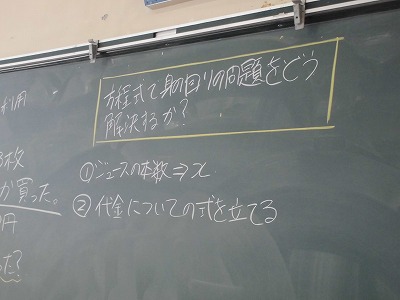 方程式で身の回りの問題をどう
解決するか?
利用
枚
か買った。
円
①ジュースの本数⇒x
②代金についての式を立てる